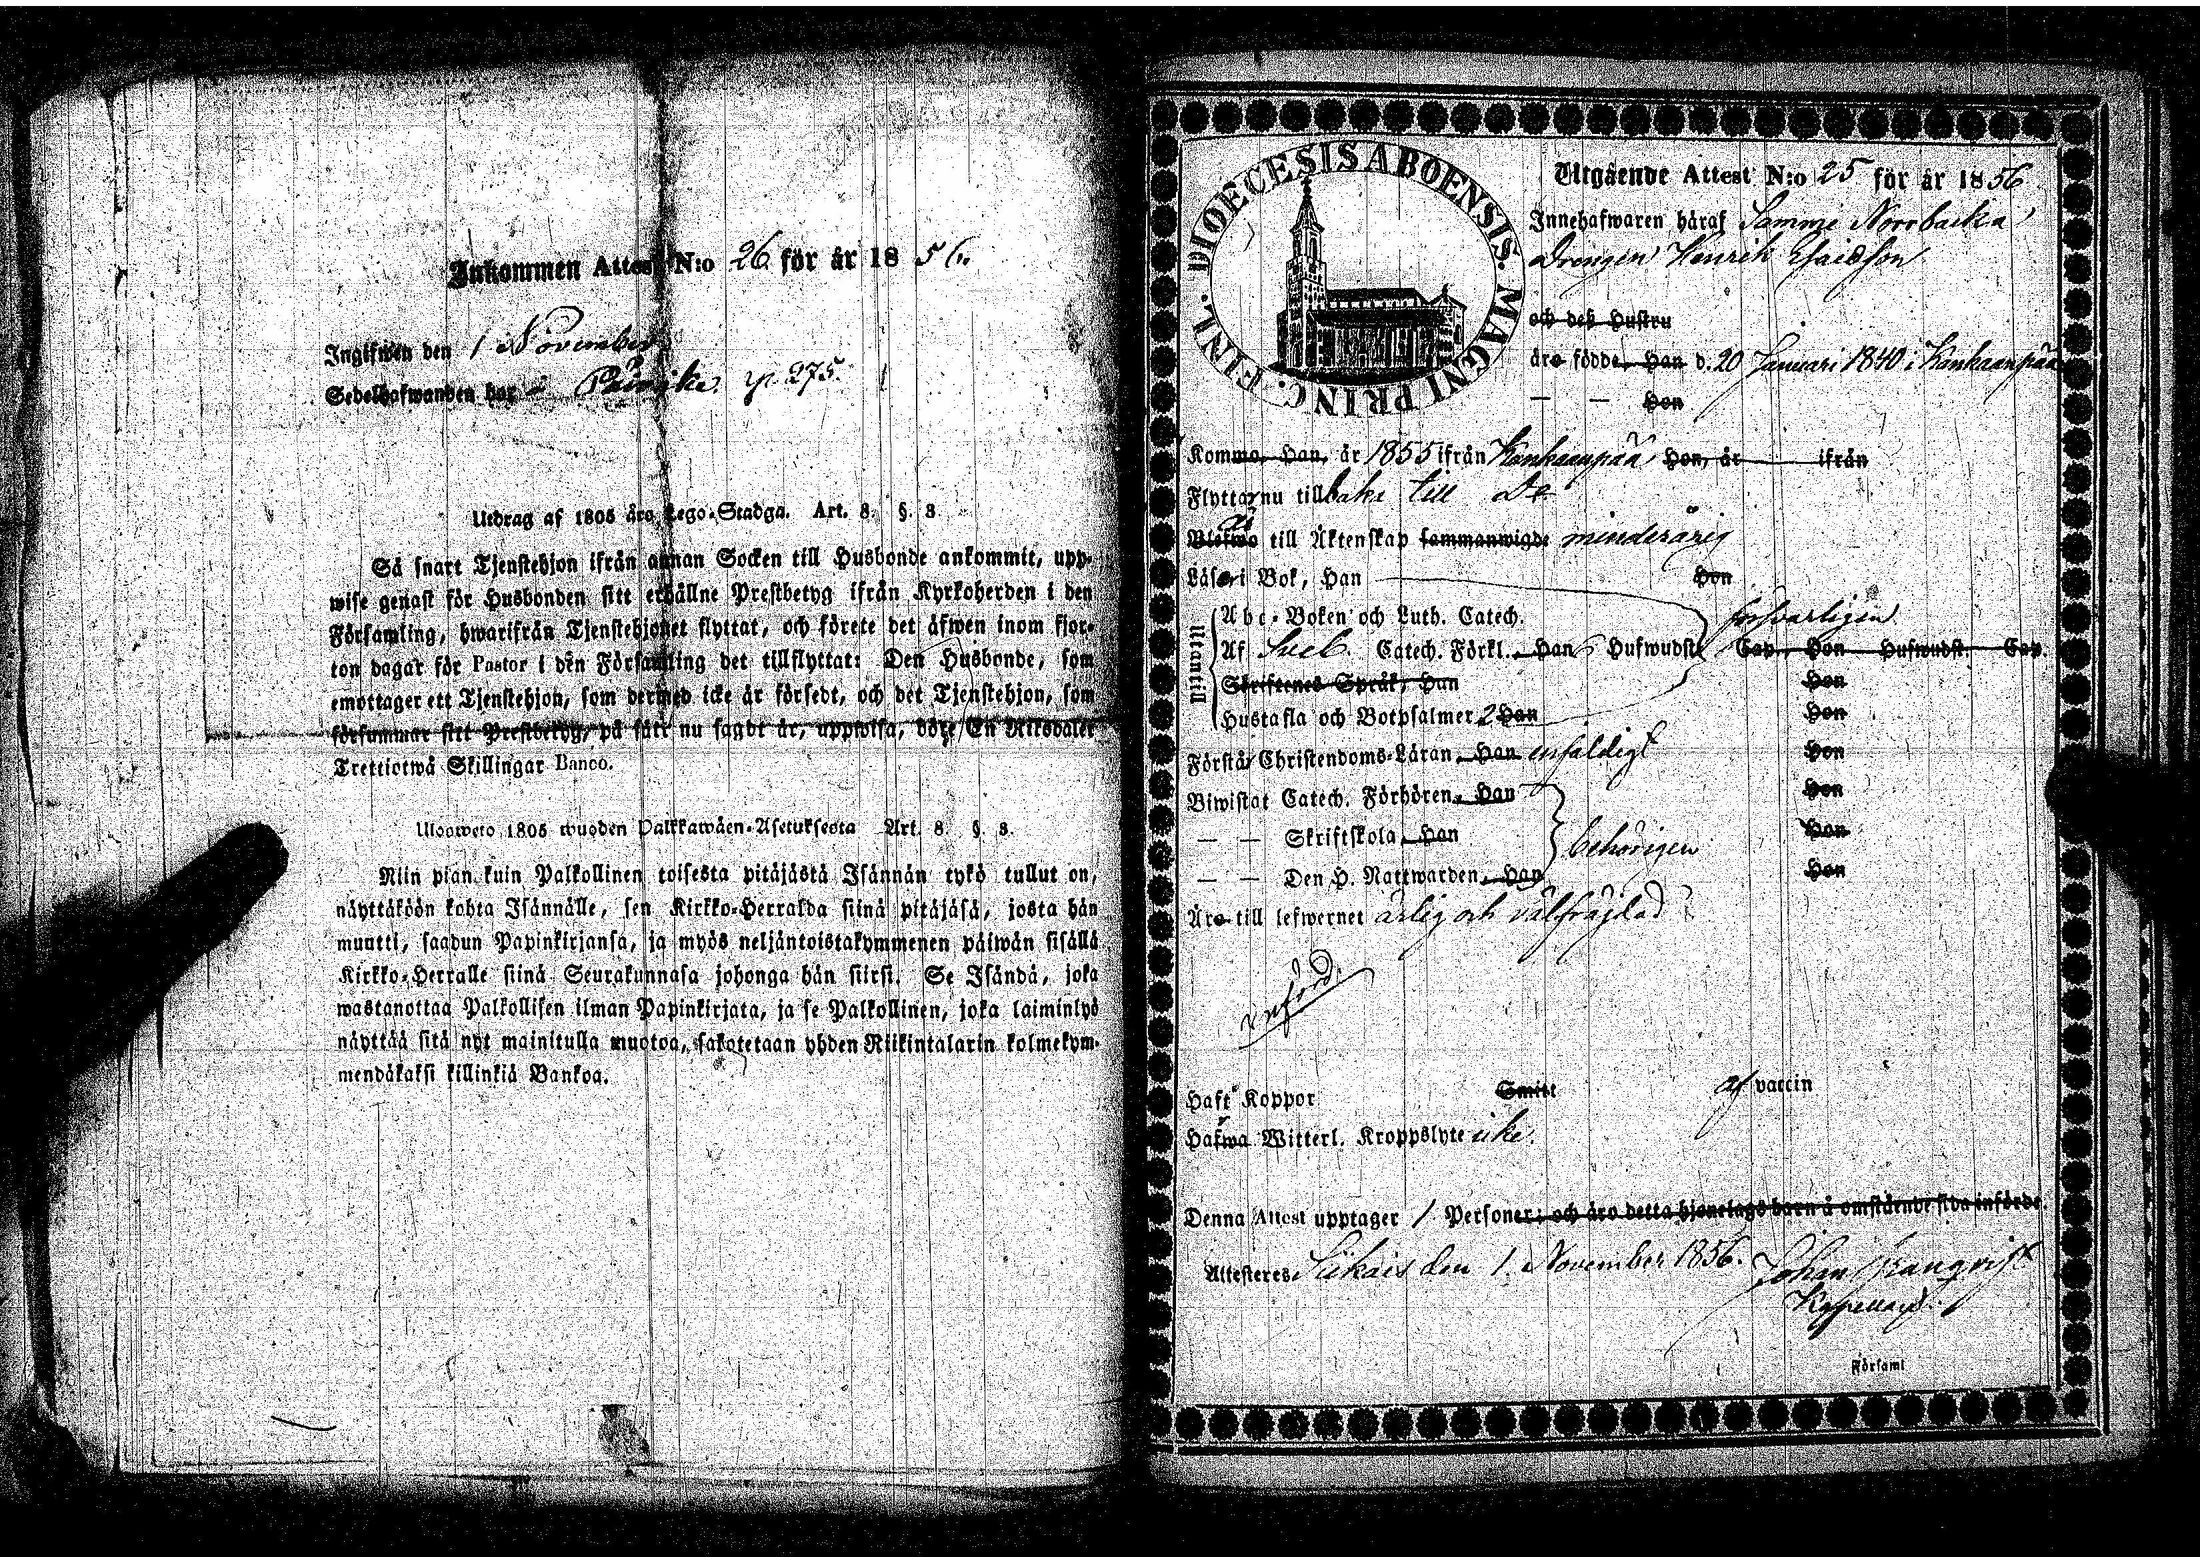 Inkommen Attest N:o 26 för år 1856.
Ingifwen den 1 November
Sedelhafwanden har p. 275.
Utdrag af 1805 års Lego-Stadga. Art. 8. §. 3.
Så snart Tjenstehjon ifrån annan Socken till Husbonde ankommit, upp-
wise genast för Husbonden sitt erhållne Prestbetyg ifrån Kyrkoherden i den
Församling, hwarifrån Tjenstehjonet flyttat, och förete det äfwen inom fjor-
ton dagar för Pastor i den Församling det tillflyttat: Den Husbonde, som
emottager ett Tjenstehjon, som dermed icke är försedt, och det Tjenstehjon, som
försummar sitt Prestbetyg, på sätt nu sagdt är, uppwisa, böte En Riksdaler
Trettiotwå Skillingar Banco.
Ulosweto 1805 wuoden Palkkawäen-Asetuksesta Art. 8. §. 3.
Niin pian kuin Palkollinen toisesta pitäjästä Isännän tykö tullut on,
näyttäköön kohta Isännälle, sen Kirkko-Herralda siinä pitäjäsä, josta hän
muutti, saadun Papinkirjansa, ja myös neljäntoistakymmenen päiwän sisällä
Kirkko-Herralle siinä Seurakunnasa johonga hän siirsi. Se Isändä, joka
wastanottaa Palkollisen ilman Papinkirjata, ja se Palkollinen, joka laiminlyö
näyttää sitä nyt mainitulla muotoa, sakotetaan yhden Riikintalarin kolmekym-
mendäkaksi killinkiä Bankoa.
DIOECESIS ABOENSIS. MAGNI PRINC. FINL.
Utgående Attest N:o 25 för år 1856
Innehafwaren häraf Samme Norrbacka
Drengen Henrik Esaidson
och deß Hustru
äro födde, Han d. 20 Januari 1840 i Kankaanpää
— — Hon
Kommo, Han, år 1855 ifrån Kankaanpää Hon, år ifrån
Flyttar nu tillbaka till Do
Blefwo till Äktenskap sammanwigde minderårig
Läser i Bok, Han Hon
Utantill
Abc-Boken och Luth. Catech. försvarligen
Af Sveb. Catech. Förkl. Han 6 Hufwudst. Cap. Hon Hufwudst. Cap.
Skriftenes Språk, Han Hon
Hustafla och Botpsalmer 2 Han Hon
Förstår Christendoms-Läran, Han enfaldigt Hon
Biwistat Catech. Förhören, Han Hon
— — Skriftskola, Han behörigen Hon
— — Den H. Nattwarden, Han Hon
Äro till lefwernet ärlig och välfräjdad
införd.
Haft Koppor Smitt af vaccin
Hafwa Witterl. Kroppslyte icke.
Denna Attest upptager 1 Personer; och äro detta hjonelags barn å omstående sida införde.
Attesteres Siikais den 1 November 1856. Johan
Kapellan
Församl